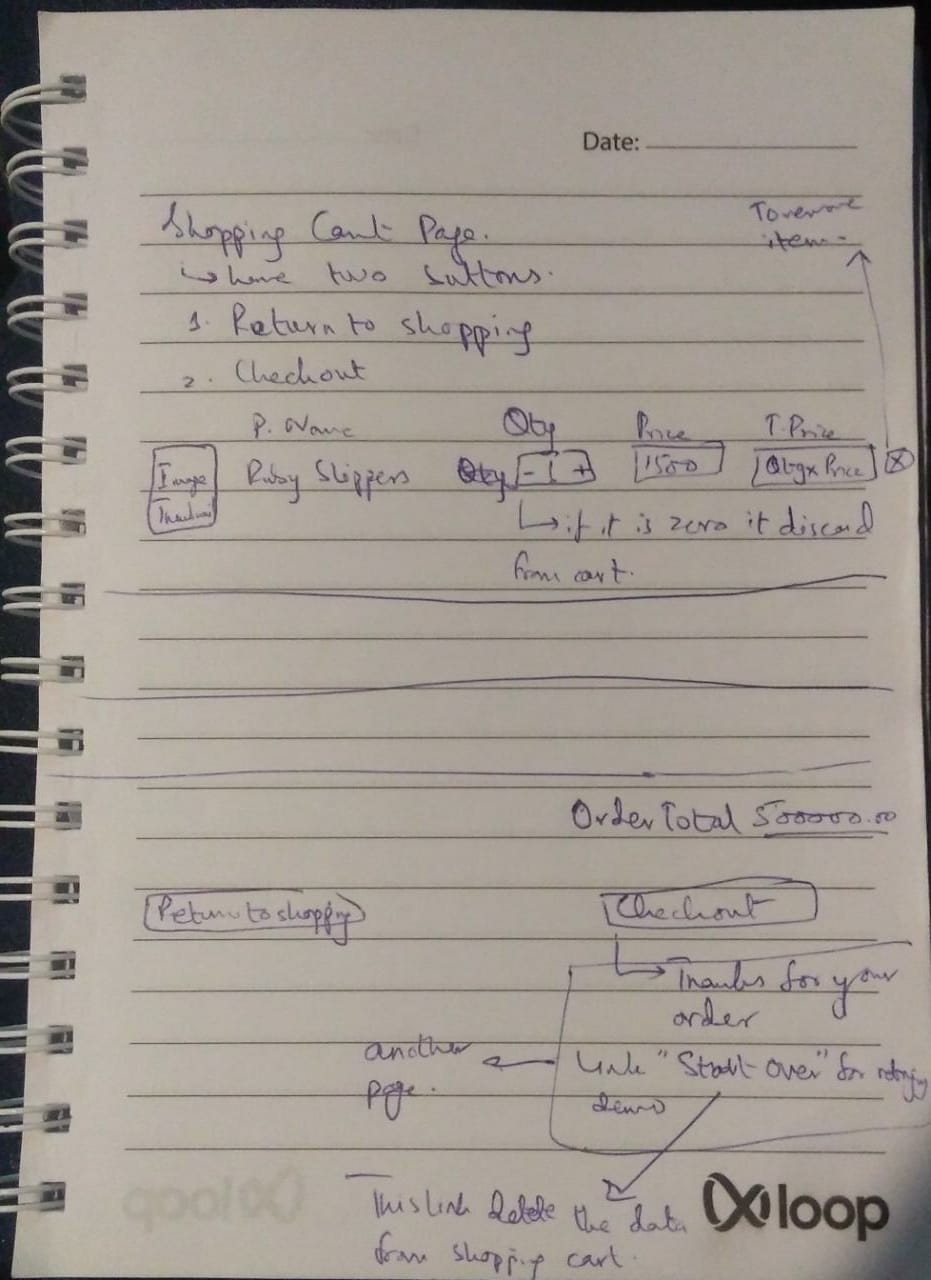 Date:
To remove
item.
Shopping Cart Page.
↳ have two buttons.
1. Return to shopping
2. Checkout
P. Name Qty Price T. Price
Image Ruby Slippers Qty - + 1500 Qty x Price X
Thumbnail
↳ if it is zero it discard
from cart.
Order Total 500000.00
Return to shopping Checkout
Thanks for your
order
another
page.
link "Start Over" for retrying
demo
This link delete the data
from shopping cart.
loop